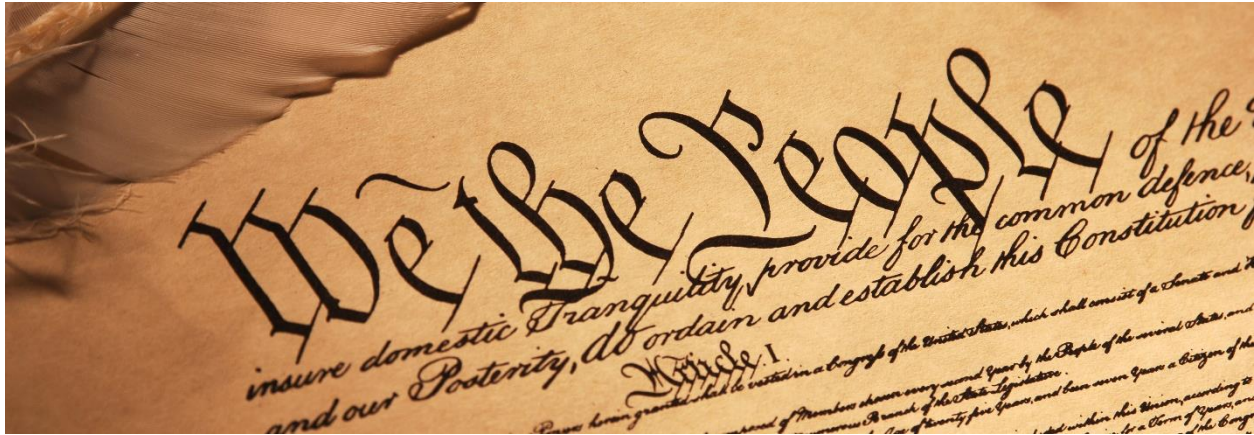 We the People of the
insure domestic Tranquility, provide for the common defence,
and our Posterity, do ordain and establish this Constitution
Article I.
herein granted shall be vested in a Congress of the United States, which shall consist of a Senate and
composed of Members chosen every second Year by the People of the several States, and
numerous Branch of the State Legislature.
Age of twenty five Years, and been seven Years a Citizen of the
within this Union, according to
for a Term of Years, and